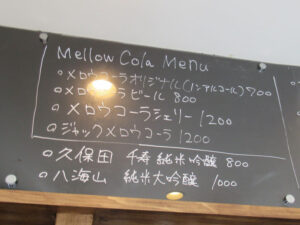 Mellow Cola Menu
○メロウコーラオリジナル(ノンアルコール)700
○メロウコーラビール 800
○メロウコーラシェリー 1200
○ジャックメロウコーラ 1200
○久保田 千寿 純米吟醸 800
○八海山 純米大吟醸 1000